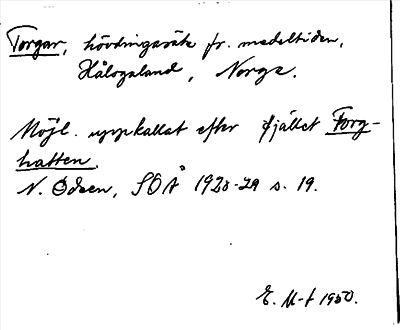 Torgar, hövdingasäte fr. medeltiden,
Hålogaland, Norge.
Möjl. uppkallat efter fjället Torg-
hatten.
N. Ödeen, SOÅ 1928-29 s. 19.
E. M-t 1950.